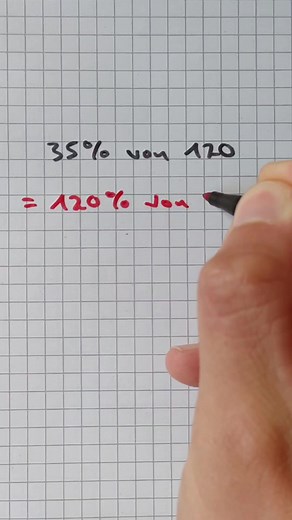 35% von 120
= 120% von